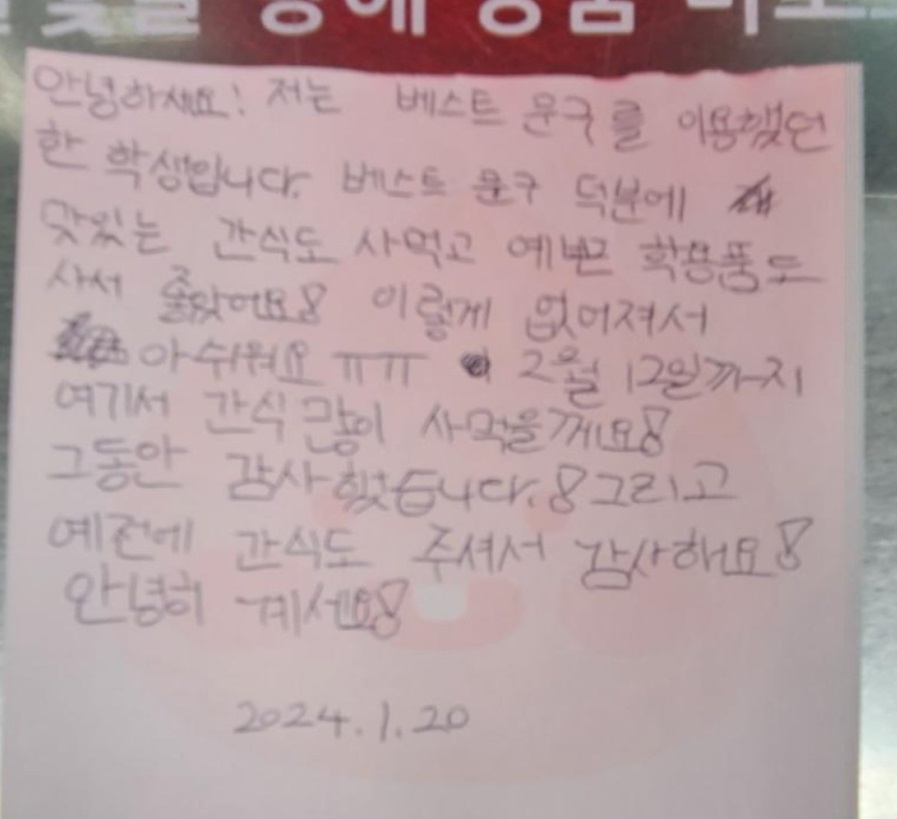 안녕하세요! 저는 베스트 문구를 이용했던
한 학생입니다. 베스트 문구 덕분에
맛있는 간식도 사먹고 예쁜 학용품도
사서 좋았어요! 이렇게 없어져서
아쉬워요 ㅠㅠ 2월 12일까지
여기서 간식 많이 사먹을께요!
그동안 감사했습니다.! 그리고
예전에 간식도 주셔서 감사해요!
안녕히 계세요!
2024.1.20